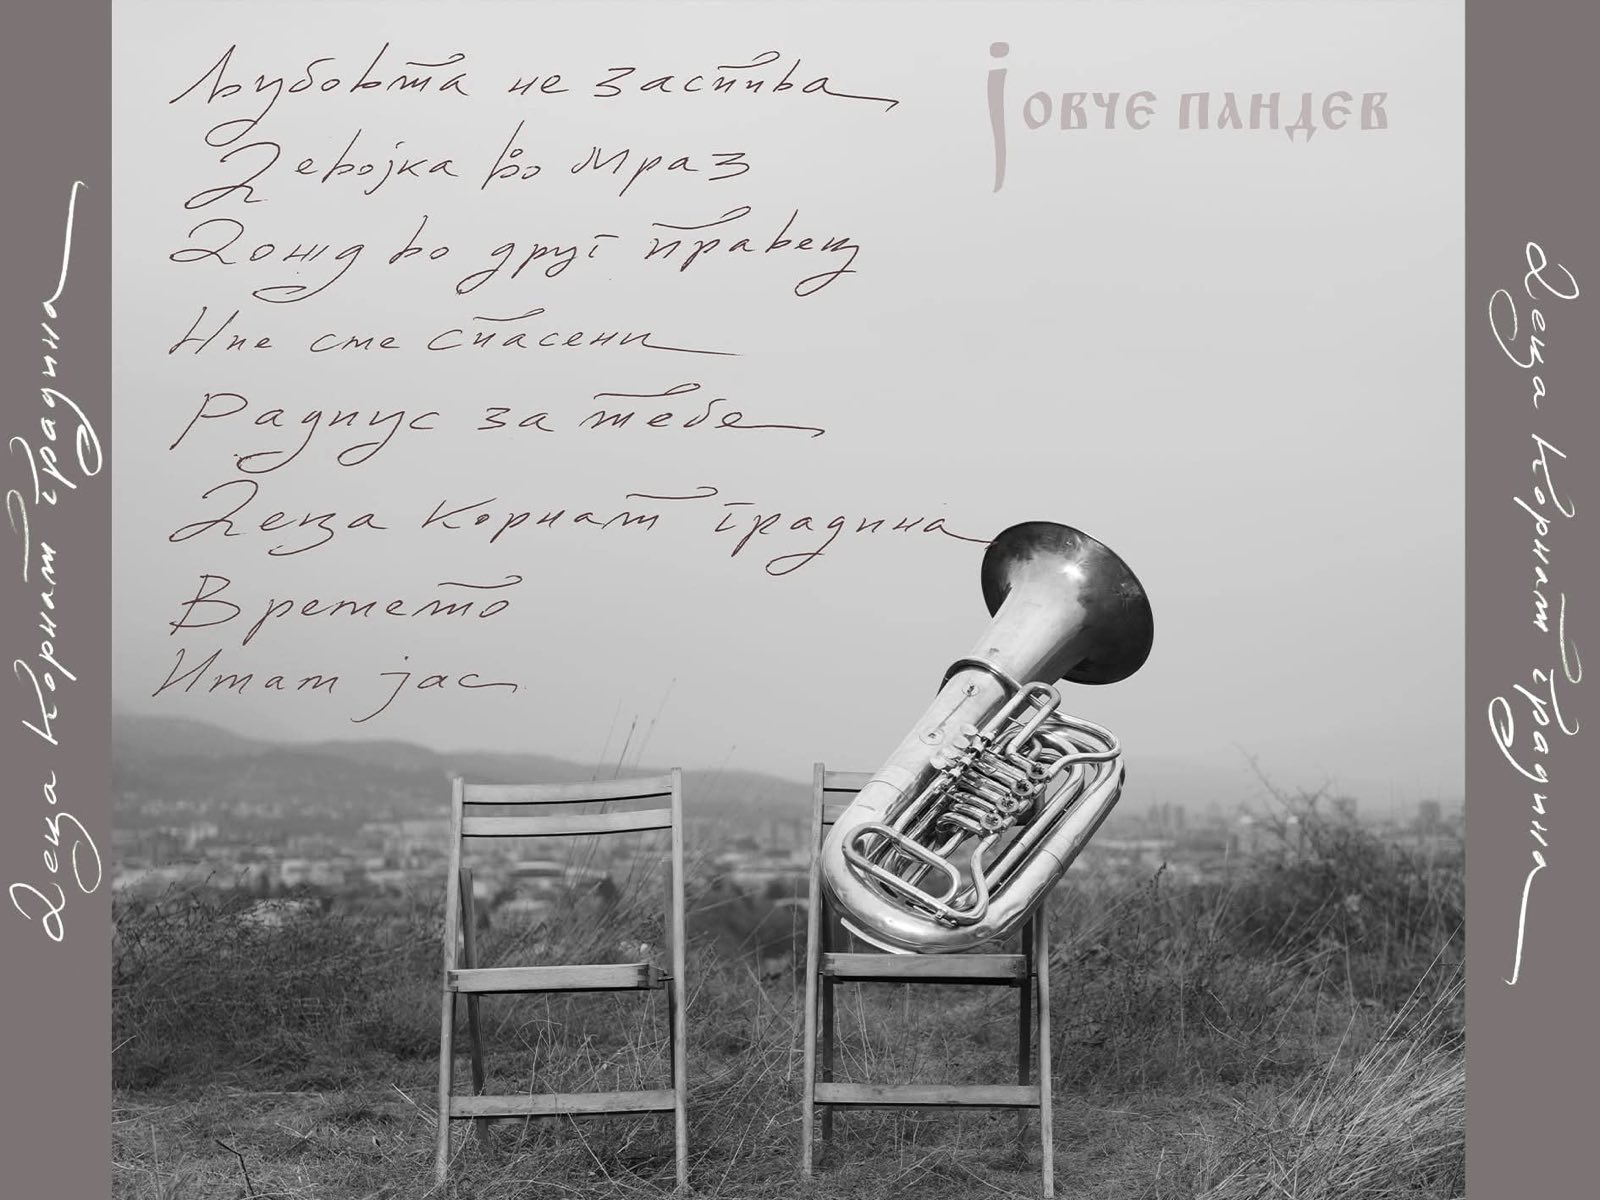 Љубовта не заспива
Девојка во мраз
Дожд во друг правец
Ние сме спасени
Радиус за тебе
Деца корнат градина
Времето
Имам јас
Јовче Пандев
Деца корнат градина
Деца корнат градина